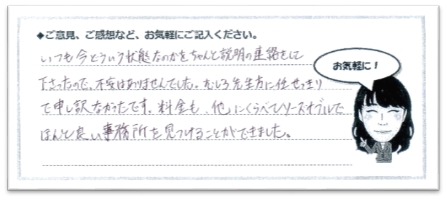 ◆ご意見、ご感想など、お気軽にご記入ください。
いつも今どういう状態なのかをちゃんと説明の連絡をして
下さったので、不安はありませんでした。むしろ先生方に任せっきり
で申し訳なかったです。料金も、他にくらべてリーズナブルで
ほんと良い事務所を見つけることができました。
お気軽に!